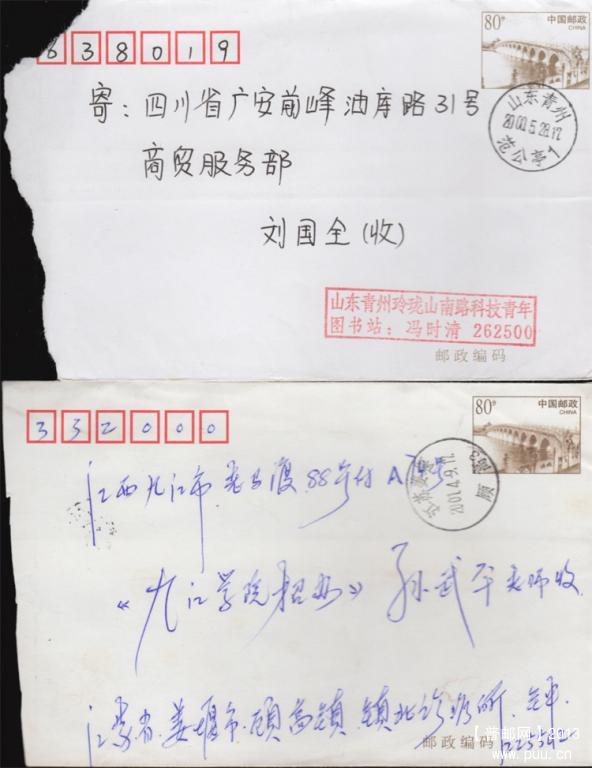 638019
80分
中国邮政
CHINA
寄：四川省广安前峰油库路31号
山东青州
2000.5.28.12
范公亭
商贸服务部
刘国全(收)
山东青州玲珑山南路科技青年
图书站：冯时清 262500
邮政编码
332000
80分
中国邮政
CHINA
江西九江市 88号付A
2001.4.9.12
《九江学院招办》孙武平老师收
江苏省.姜堰市.顾高镇.镇北诊所
邮政编码
【昔邮网】2013
www.puu.cn